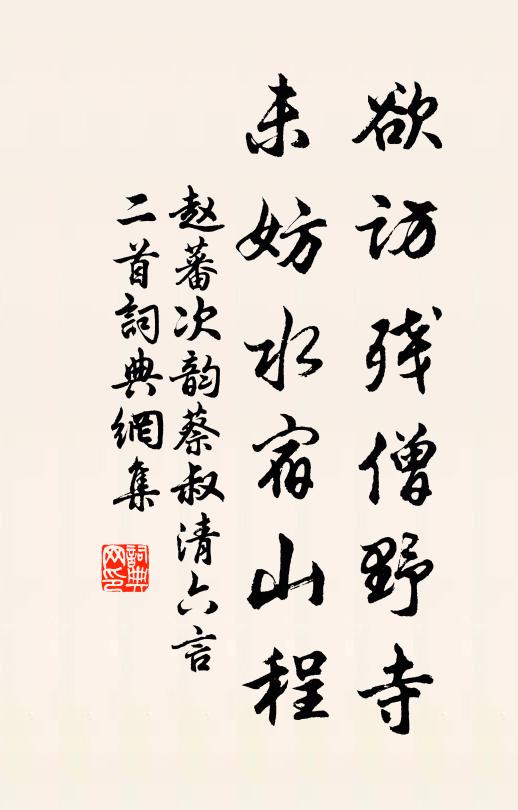 欲访残僧野寺
未妨水宿山程
赵蕃次韵蔡叔清六言
二首詞典網集
詞典
网印